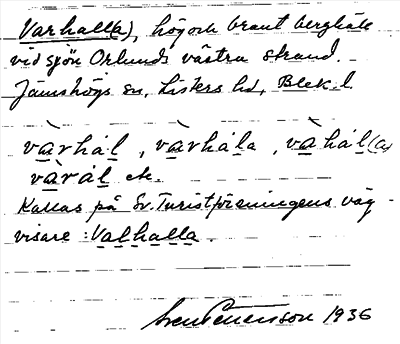 Varhall(a), hög och brant berghäll
vid sjön Orlunds västra strand.
Jämshögs sn, Listers hd, Blek. l.
vàrhál, vàrhála, vàhál(a)
vàrál etc.
Kallas på Sv. Turistföreningens väg-
visare: Valhalla.
Sven Benson 1936